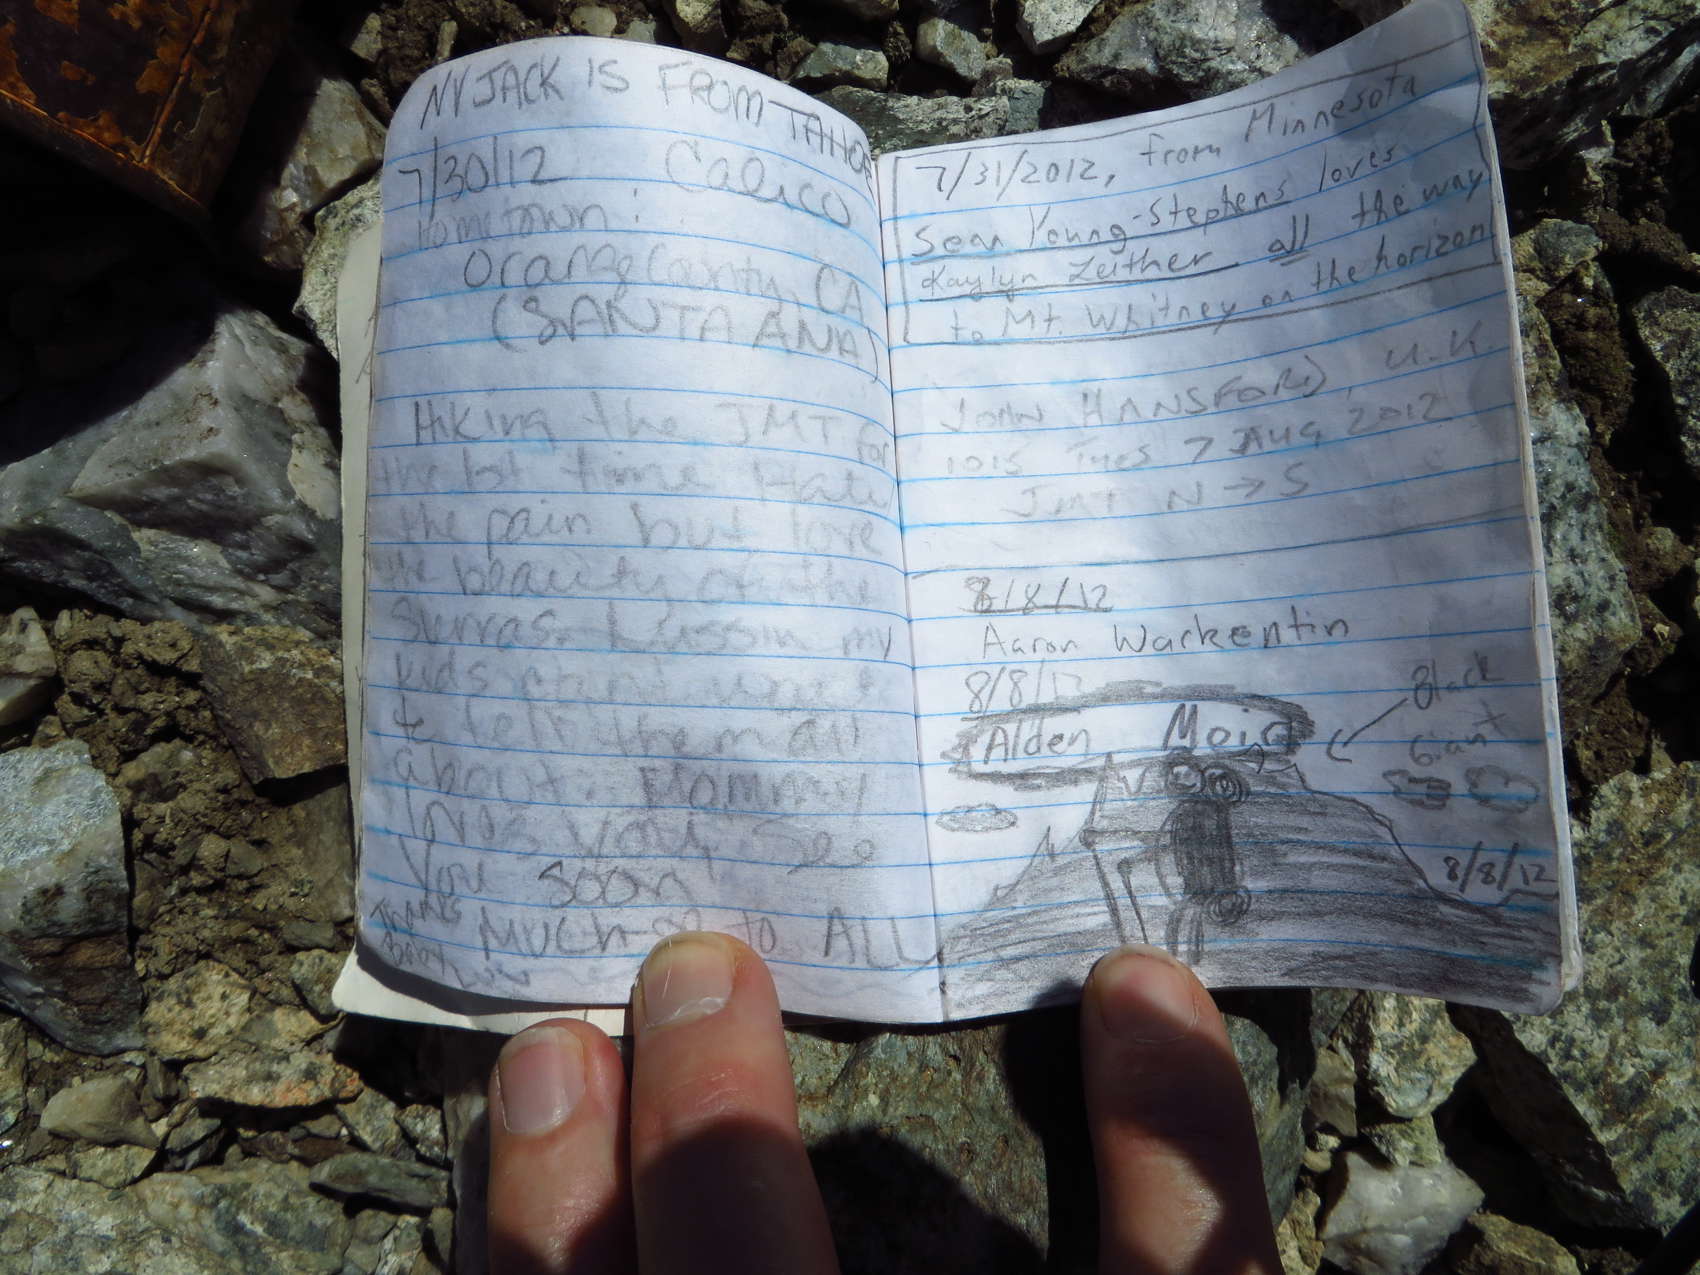 NY JACK IS FROM TAHOE
7/30/12 Calico
Hometown:
Orange County, CA
(SANTA ANA)
Hiking the JMT for
the 1st time Hate
the pain but love
the beauty of the
Sierras. my
kids can't wait
to tell them all
about. Mommy
you, See
You Soon
Thanks MUCH to ALL
7/31/2012, from Minnesota
Sean Young-Stephens loves
Kaylyn Zeither all the way
to Mt. Whitney on the horizon
JOHN HANSFORD, U.K.
1015 TUES 7 AUG 2012
JMT N → S
8/8/12
Aaron Warkentin
8/8/12
Alden Moir
Black
Giant
8/8/12